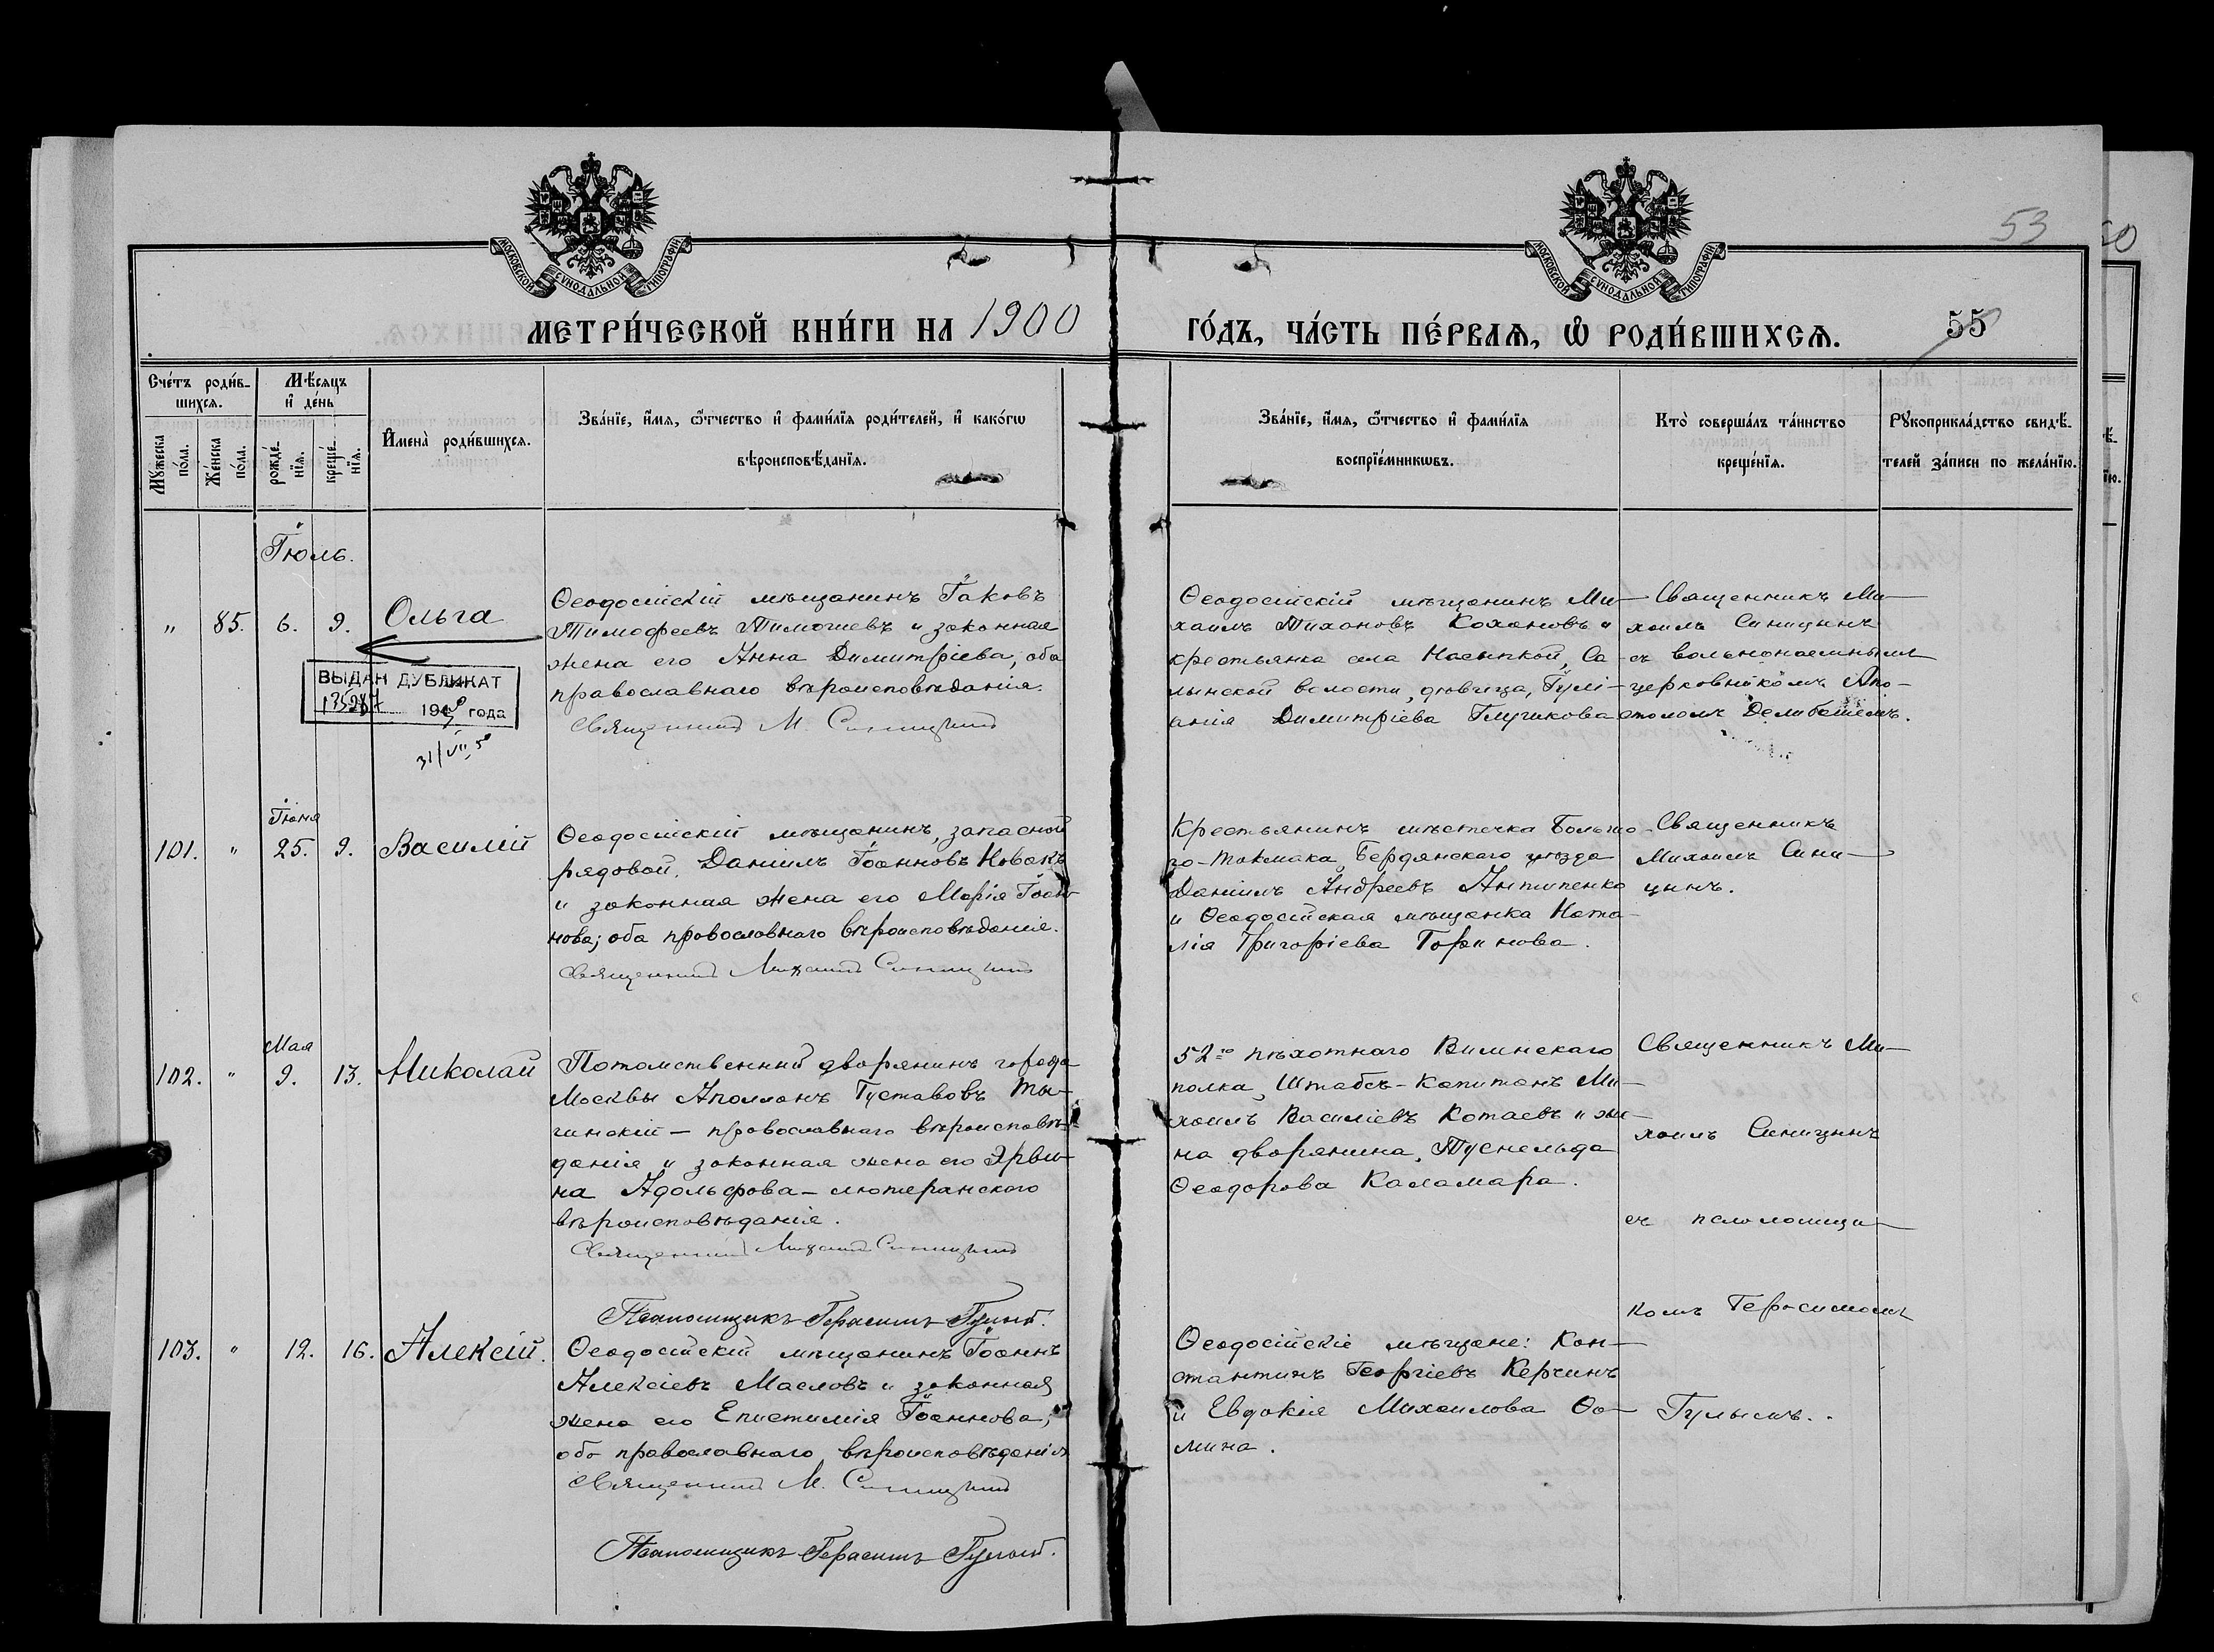 МОСКОВСКОЙ СУНОДАЛЬНОЙ ТИПОГРАФІИ
МОСКОВСКОЙ СУНОДАЛЬНОЙ ТИПОГРАФІИ
53
50
МЕТРИ́ЧЕСКОЙ КНИ́ГИ НА 1900
ГО́ДЪ, ЧА́СТЬ ПЕ́РВАѦ, Ѡ҆ РОДИ́ВШИХСѦ.
55
Сче́тъ роди́в-
шихсѧ.
Мѣ́сѧцъ
и҆ де́нь
Мꙋ́жеска
по́ла.
Же́нска
по́ла.
рожде́-
нїѧ.
креще́-
нїѧ.
И҆мена̀ роди́вшихсѧ.
Зва́нїе, и҆́мѧ, ѻ҆́тчество и҆ фами́лїѧ роди́телей, и҆ како́гѡ
вѣроисповѣ́данїѧ.
Зва́нїе, и҆́мѧ, ѻ҆́тчество и҆ фами́лїѧ
воспрїе́мникѡвъ.
Кто̀ соверша́лъ та́инство
креще́нїѧ.
Рꙋкоприкла́дство свидѣ́-
телей за́писи по жела́нїю.
Іюль.
" 85. 6. 9. Ольга
Ѳеодосійскій мѣщанинъ Іаковъ
Тимофеевъ Тимошевъ и законная
жена его Анна Димитріева, оба
православнаго вѣроисповѣданія.
Священникъ М. Синицынъ
Ѳеодосійскій мѣщанинъ Ми-
хаилъ Тихоновъ Кохановъ и
крестьянка села Насыпкой, Са-
лынской волости, дѣвица, Іулі-
анія Димитріева Глушкова
Священникъ Ми-
хаилъ Синицынъ
съ вольнонаемнымъ
церковникомъ Апо-
столомъ Делибашемъ.
ВЫДАН ДУБЛИКАТ
194 года
31/VII 50
Іюня
101. " 25. 9. Василій
Ѳеодосійскій мѣщанинъ, запасной
рядовой, Даніилъ Іоанновъ Новакъ
и законная жена его Марія Іоан-
нова; оба православнаго вѣроисповѣданія.
Священникъ Михаилъ Синицынъ
Крестьянинъ мѣстечка Больша-
го-Токмака, Бердянскаго уѣзда
Даніилъ Андреевъ Антипенко
и Ѳеодосійская мѣщанка Ната-
лія Григоріева Горинова.
Священникъ
Михаилъ Сини-
цынъ.
Мая
102. " 9. 13. Николай
Потомственный дворянинъ города
Москвы Аполлонъ Густавовъ Ты-
чинскій - православнаго вѣроисповѣ-
данія и законная жена его Эрви-
на Адольфова - лютеранскаго
вѣроисповѣданія.
Священникъ Михаилъ Синицынъ
Псаломщикъ Герасимъ Гулый.
52го пѣхотнаго Виленскаго
полка, Штабсъ-Капитанъ Ми-
хаилъ Василіевъ Котаевъ и же-
на дворянина, Туснельда
Ѳеодорова Каламара.
Священникъ Ми-
хаилъ Синицынъ
съ псаломщи-
комъ Герасимомъ
Гулымъ.
103. " 12. 16. Алексій.
Ѳеодосійскій мѣщанинъ Іоаннъ
Алексіевъ Масловъ и законная
жена его Епистимія Іоаннова;
оба православнаго вѣроисповѣданія
Священникъ М. Синицынъ
Псаломщикъ Герасимъ Гулый.
Ѳеодосійскіе мѣщане: Кон-
стантинъ Георгіевъ Керчинъ
и Евдокія Михаилова Ѳо-
мина.